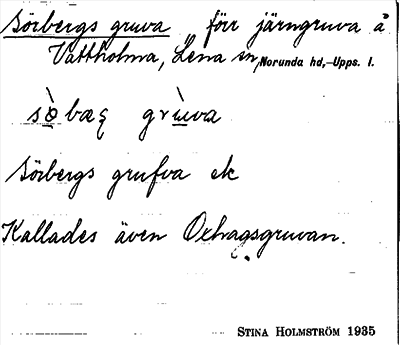 Sörbergs gruva förr järngruva å
Vattholma, Lena sn, Norunda hd, Upps. l.
sö̀bæʂ grùva
Sörbergs grufva ek
Kallades även Oxhagsgruvan.
STINA HOLMSTRÖM 1935